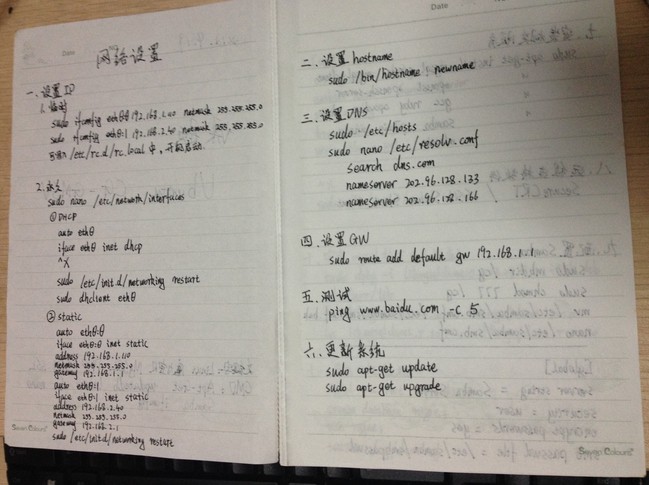 Date
网络设置
一、设置IP
1.临时
sudo ifconfig eth0:0 192.168.1.40 netmask 255.255.255.0
sudo ifconfig eth0:1 192.168.2.40 netmask 255.255.255.0
写入 /etc/rc.d/rc.local 中，开机启动.
2.永久
sudo nano /etc/network/interfaces
① DHCP
auto eth0
iface eth0 inet dhcp
^X
sudo /etc/init.d/networking restart
sudo dhclient eth0
② static
auto eth0:0
iface eth0:0 inet static
address 192.168.1.110
netmask 255.255.255.0
gateway 192.168.1.1
auto eth0:1
iface eth0:1 inet static
address 192.168.2.40
netmask 255.255.255.0
gateway 192.168.2.1
sudo /etc/init.d/networking restart
Seven Colours
Date
二、设置 hostname
sudo /bin/hostname newname
三、设置DNS
sudo /etc/hosts
sudo nano /etc/resolv.conf
search dns.com
nameserver 202.96.128.133
nameserver 202.96.128.166
四、设置GW
sudo route add default gw 192.168.1.1
五、测试
ping www.baidu.com -c 5
六、更新系统
sudo apt-get update
sudo apt-get upgrade
Seven Colours